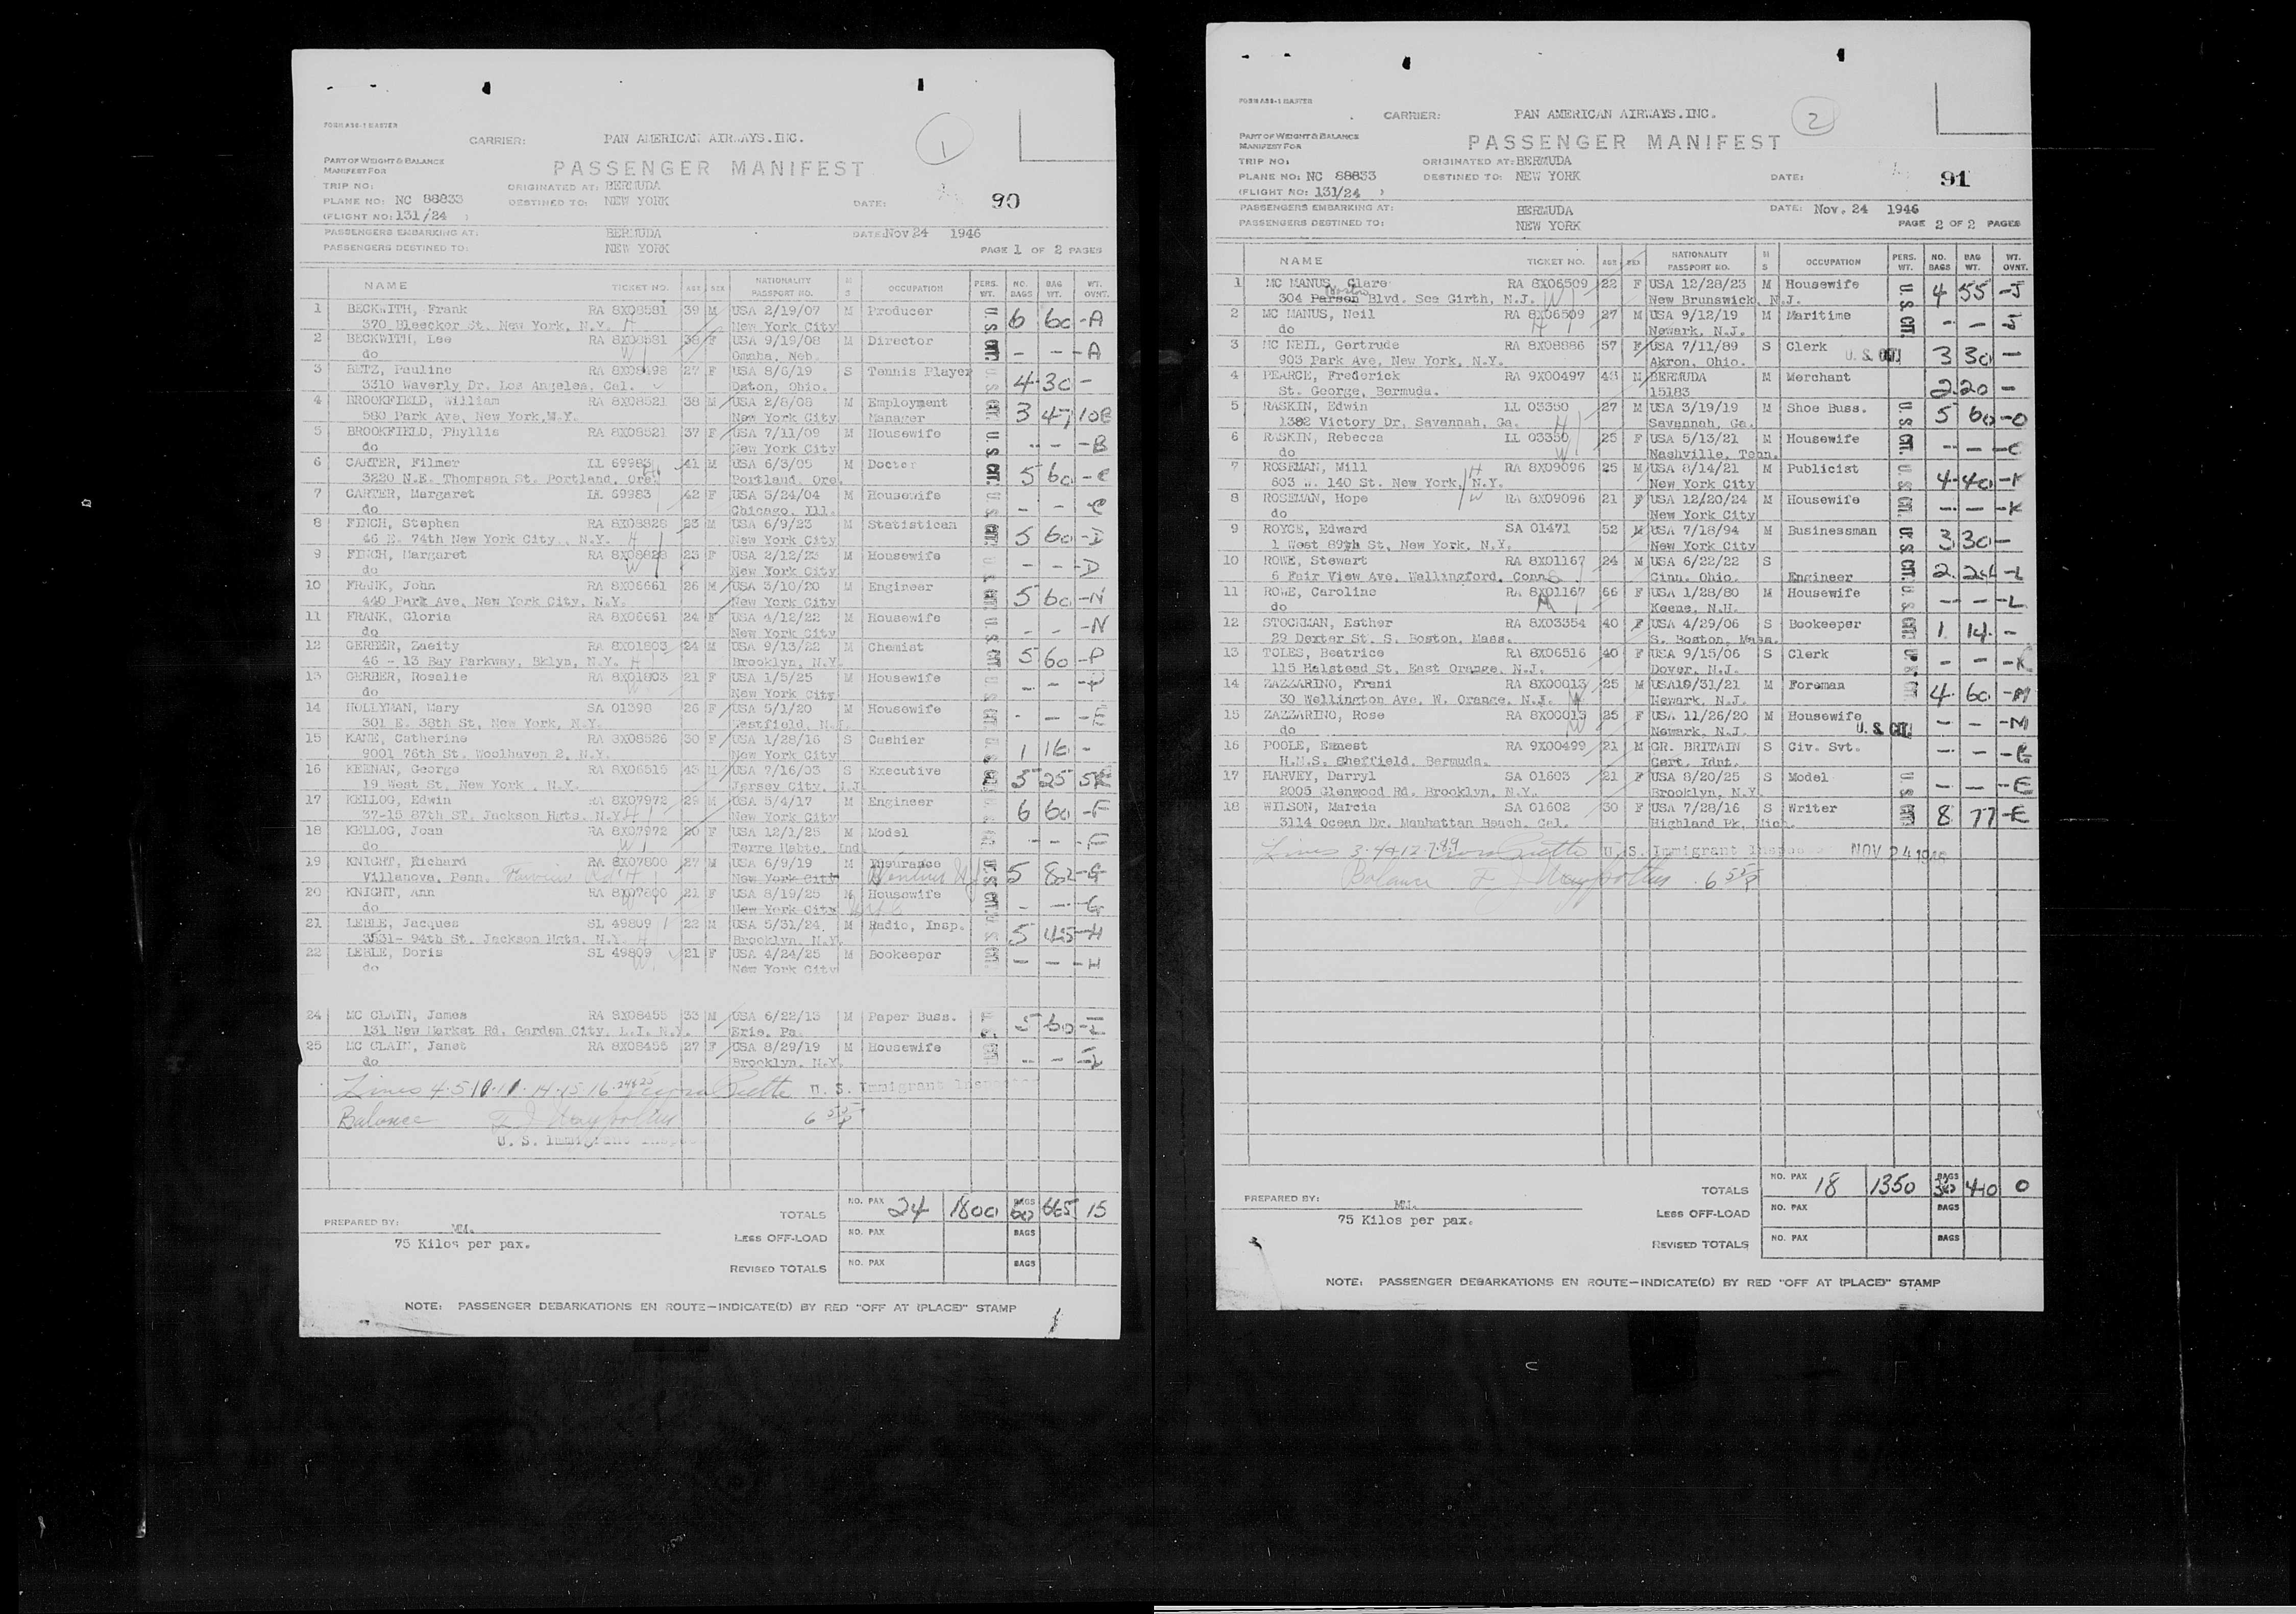 FORM ASS-1 MASTER
CARRIER: PAN AMERICAN AIRWAYS.INC. 1
PART OF WEIGHT & BALANCE
MANIFEST FOR
PASSENGER MANIFEST
TRIP NO: ORIGINATED AT: BERMUDA
PLANE NO: NC 88833 DESTINED TO: NEW YORK DATE: 90
(FLIGHT NO: 131/24 )
PASSENGERS EMBARKING AT: BERMUDA DATE: Nov 24 1946
PASSENGERS DESTINED TO: NEW YORK PAGE 1 OF 2 PAGES
NAME TICKET NO. AGE SEX NATIONALITY PASSPORT NO. M S OCCUPATION PERS. WT. NO. BAGS BAG WT. WT. OVNT.
1 BECKWITH, Frank RA 8X08581 39 M USA 2/19/07 M Producer 6 60 -A
370 Bleecker St. New York, N.Y. H New York City
2 BECKWITH, Lee RA 8X08581 38 F USA 9/19/08 M Director - - -A
do W Omaha, Neb.
3 BETZ, Pauline RA 8X08498 27 F USA 8/6/19 S Tennis Player 4 30 -
3310 Waverly Dr. Los Angeles, Cal. Daton, Ohio.
4 BROOKFIELD, William RA 8X08521 38 M USA 2/8/08 M Employment 3 47 10B
580 Park Ave, New York,N.Y. New York City Manager
5 BROOKFIELD, Phyllis RA 8X08521 37 F USA 7/11/09 M Housewife - - -B
do New York City
6 CARTER, Filmer LL 69983 41 M USA 6/3/05 M Doctor 5 60 -C
3220 N.E. Thompson St. Portland, Ore. Portland, Ore.
7 CARTER, Margaret LL 69983 42 F USA 3/24/04 M Housewife - - C
do Chicago, Ill.
8 FINCH, Stephen RA 8X08828 23 M USA 6/9/23 M Statistican 5 60 -D
46 E. 74th New York City, N.Y. H New York City
9 FINCH, Margaret RA 8X08828 23 F USA 2/12/23 M Housewife - - -D
do W New York City
10 FRANK, John RA 8X06661 26 M USA 3/10/20 M Engineer 5 60 -N
440 Park Ave, New York City, N.Y. New York City
11 FRANK, Gloria RA 8X06661 24 F USA 4/12/22 M Housewife - - -N
do New York City
12 GERBER, Zaeity RA 8X01803 24 M USA 9/13/22 M Chemist 5 60 -P
46 - 13 Bay Parkway, Bklyn, N.Y. H Brooklyn, N.Y.
13 GERBER, Rosalie RA 8X01803 21 F USA 1/5/25 M Housewife - - -P
do New York City
14 HOLLYMAN, Mary SA 01398 26 F USA 5/1/20 M Housewife - - -E
301 E. 38th St, New York, N.Y. Westfield, N.J.
15 KANE, Catherine RA 8X08526 30 F USA 1/28/16 S Cashier 1 16 -
9001 76th St. Woolhaven 2, N.Y. New York City
16 KEENAN, George RA 8X06515 43 M USA 7/16/03 S Executive 3 25 5E
19 West St, New York , N.Y. Jersey City, N.J
17 KELLOG, Edwin RA 8X07972 29 M USA 5/4/17 M Engineer 6 60 -F
37-15 87th ST. Jackson Hgts. N.Y. H New York City
18 KELLOG, Joan RA 8X07972 20 F USA 12/1/25 M Model - - -F
do W Terre Habte, Ind
19 KNIGHT, Richard RA 8X07800 27 M USA 6/9/19 M Insurance 5 82 -G
Villanova, Penn. New York City
20 KNIGHT, Ann RA 8X07800 21 F USA 8/19/25 M Housewife - - G
do New York City
21 LEBLE, Jacques SL 49809 22 M USA 5/31/24 M Radio, Insp. 5 45 -H
3531- 94th St. Jackson Hgts. N.Y. H Brooklyn, N.Y.
22 LEBLE, Doris SL 49809 21 F USA 4/24/25 M Bookeeper - - -H
do New York City
24 MC CLAIN, James RA 8X08455 33 M USA 6/22/13 M Paper Buss. 5 60 -I
131 New Market Rd, Garden City, L.I. N.Y. Erie, Pa.
25 MC CLAIN, Janet RA 8X08455 27 F USA 8/29/19 M Housewife - - -I
do Brooklyn, N.Y.
Lines 4-5-10-11-14-15-16 24&25 U. S. Immigrant Inspector
Balance 6
U. S. Immigrant
PREPARED BY: MM. TOTALS NO. PAX 24 1800 BAGS 60 665 15
75 Kilos per pax. LESS OFF-LOAD NO. PAX BAGS
REVISED TOTALS NO. PAX BAGS
NOTE: PASSENGER DEBARKATIONS EN ROUTE—INDICATE(D) BY RED "OFF AT (PLACE)" STAMP
FORM ASS-1 MASTER
CARRIER: PAN AMERICAN AIRWAYS.INC. 2
PART OF WEIGHT & BALANCE
MANIFEST FOR
PASSENGER MANIFEST
TRIP NO: ORIGINATED AT: BERMUDA
PLANE NO: NC 88833 DESTINED TO: NEW YORK DATE: 91
(FLIGHT NO: 131/24 )
PASSENGERS EMBARKING AT: BERMUDA DATE: Nov. 24 1946
PASSENGERS DESTINED TO: NEW YORK PAGE 2 OF 2 PAGES
NAME TICKET NO. AGE SEX NATIONALITY PASSPORT NO. M S OCCUPATION PERS. WT. NO. BAGS BAG WT. WT. OVNT.
1 MC MANUS, Clare RA 8X06509 22 F USA 12/28/23 M Housewife 4 55 -J
304 Parson Blvd. Sea Girth, N.J. W New Brunswick, N.J.
2 MC MANUS, Neil RA 8X06509 27 M USA 9/12/19 M Maritime - - J
do H Newark, N.J.
3 MC NEIL, Gertrude RA 8X08886 57 F USA 7/11/89 S Clerk U. S. CIT. 3 30 -
903 Park Ave, New York, N.Y. Akron, Ohio.
4 PEARCE, Frederick RA 9X00497 43 M BERMUDA M Merchant 2 20 -
St. George, Bermuda. 15183
5 RASKIN, Edwin LL 03350 27 M USA 3/19/19 M Shoe Buss. 5 60 -O
1382 Victory Dr, Savannah, Ga. H Savannah, Ga.
6 RASKIN, Rebecca LL 03350 25 F USA 5/13/21 M Housewife - - -O
do W Nashville, Tenn.
7 ROSEMAN, Mill RA 8X09096 25 M USA 8/14/21 M Publicist 4 40 -K
603 W. 140 St. New York, N.Y. H New York City
8 ROSEMAN, Hope RA 8X09096 21 F USA 12/20/24 M Housewife - - -K
do W New York City
9 ROYCE, Edward SA 01471 52 M USA 7/18/94 M Businessman 3 30 -
1 West 89th St, New York, N.Y. New York City
10 ROWE, Stewart RA 8X01167 24 M USA 6/22/22 S Engineer 2 24 -L
6 Fair View Ave, Wallingford, Conn. Cinn. Ohio.
11 ROWE, Caroline RA 8X01167 66 F USA 1/28/80 M Housewife - - -L
do M Keene, N.H.
12 STOCKMAN, Esther RA 8X03354 40 F USA 4/29/06 S Bookeeper 1 14 -
29 Dexter St. S. Boston, Mass. S. Boston, Mass.
13 TOLES, Beatrice RA 8X06516 40 F USA 9/15/06 S Clerk - - -K
115 Halstead St, East Orange, N.J. Dover, N.J.
14 ZAZZARINO, Frani RA 8X00013 25 M USA10/31/21 M Foreman 4 60 -M
30 Wellington Ave, W. Orange, N.J. Newark, N.J.
15 ZAZZARINO, Rose RA 8X00013 25 F USA 11/26/20 M Housewife U. S. CIT. - - -M
do W Newark, N.J.
16 POOLE, Ernest RA 9X00499 21 M GR. BRITAIN S Civ. Svt. - - -E
H.M.S. Sheffield, Bermuda. Cert. Idnt.
17 HARVEY, Darryl SA 01603 21 F USA 8/20/25 S Model - - -E
2005 Glenwood Rd. Brooklyn, N.Y. Brooklyn, N.Y.
18 WILSON, Marcia SA 01602 30 F USA 7/28/16 S Writer 8 77 -E
3114 Ocean Dr. Manhattan Beach, Cal. Highland Pk, Mich.
Lines 3-4-12 U. S. Immigrant NOV 24 1946
Balance 6
PREPARED BY: MM. TOTALS NO. PAX 18 1350 BAGS 440 0
75 Kilos per pax. LESS OFF-LOAD NO. PAX BAGS
REVISED TOTALS NO. PAX BAGS
NOTE: PASSENGER DEBARKATIONS EN ROUTE—INDICATE(D) BY RED "OFF AT (PLACE)" STAMP